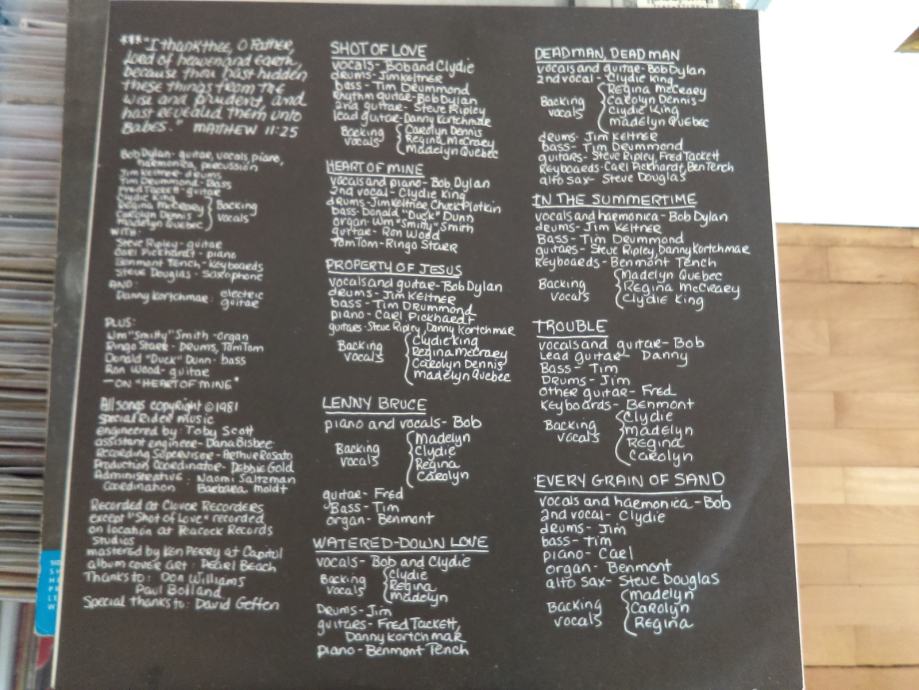 ***"I thank thee, O Father,
Lord of heaven and Earth,
because thou hast hidden
these things from the
wise and prudent, and
hast revealed them unto
Babes." MATTHEW 11:25
Bob Dylan- guitar, vocals, piano,
harmonica, percussion
Jim Keltner- drums
Tim Drummond- Bass
Fred Tackett- guitar
Clydie King
Regina McCreary
Carolyn Dennis
Madelyn Quebec
Backing
vocals
WITH:
Steve Ripley- guitar
Carl Pickhardt- piano
Benmont Tench- Keyboards
Steve Douglas- Saxophone
AND:
Danny Kortchmar: electric
guitar
PLUS:
Wm "Smitty" Smith- organ
Ringo Starr- Drums, Tom Tom
Donald "Duck" Dunn- bass
Ron Wood- guitar
—ON "HEART OF MINE"
All songs copyright ©1981
Special Rider music
engineered by Toby Scott
assistant engineer- Dana Bisbee
Recording Supervisor- Arthur Rosato
Production Coordinator- Debbie Gold
Administrative: Naomi Saltzman
Coordination Barbara Moldt
Recorded at Clover Recorders
except "Shot of Love" recorded
on location at Peacock Records
Studios
mastered by Ken Perry at Capitol
album cover art: Pearl Beach
Thanks to: Don Williams
Paul Bolland
Special thanks to: David Geffen
SHOT OF LOVE
vocals- Bob and Clydie
drums- Jim Keltner
bass- Tim Drummond
Rhythm guitar- Bob Dylan
2nd guitar- Steve Ripley
lead guitar- Danny Kortchmar
Backing
vocals
Carolyn Dennis
Regina McCraey
Madelyn Quebec
HEART OF MINE
vocals and piano- Bob Dylan
2nd vocal- Clydie King
drums- Jim Keltner Chuck Plotkin
bass- Donald "Duck" Dunn
organ- Wm "Smitty" Smith
guitar- Ron Wood
Tom Tom- Ringo Starr
PROPERTY OF JESUS
vocals and guitar- Bob Dylan
drums- Jim Keltner
bass- Tim Drummond
piano- Carl Pickhardt
guitars- Steve Ripley, Danny Kortchmar
Backing
vocals
Clydie King
Regina McCraey
Carolyn Dennis
Madelyn Quebec
LENNY BRUCE
piano and vocals- Bob
Backing
vocals
Madelyn
Clydie
Regina
Carolyn
guitar- Fred
Bass- Tim
organ- Benmont
WATERED-DOWN LOVE
vocals- Bob and Clydie
Backing
vocals
Clydie
Regina
Madelyn
Drums- Jim
guitars- Fred Tackett,
Danny Kortchmar
piano- Benmont Tench
DEAD MAN, DEAD MAN
vocals and guitar- Bob Dylan
2nd vocal- Clydie King
Backing
vocals
Regina McCreary
Carolyn Dennis
Clydie King
Madelyn Quebec
drums- Jim Keltner
bass- Tim Drummond
guitars- Steve Ripley, Fred Tackett
Keyboards- Carl Pickhardt, Ben Tench
alto sax- Steve Douglas
IN THE SUMMERTIME
vocals and harmonica- Bob Dylan
drums- Jim Keltner
Bass- Tim Drummond
guitars- Steve Ripley, Danny Kortchmar
Keyboards- Benmont Tench
Backing
vocals
Madelyn Quebec
Regina McCreary
Clydie King
TROUBLE
vocals and guitar- Bob
Lead guitar- Danny
Bass- Tim
Drums- Jim
other guitar- Fred
Keyboards- Benmont
Backing
vocals
Clydie
Madelyn
Regina
Carolyn
EVERY GRAIN OF SAND
vocals and harmonica- Bob
2nd vocal- Clydie
drums- Jim
bass- Tim
piano- Carl
organ- Benmont
alto sax- Steve Douglas
Backing
vocals
Madelyn
Carolyn
Regina